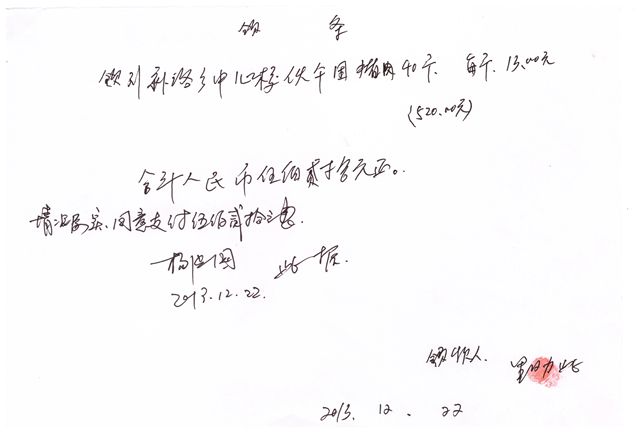 领 条
领到新路乡中心校伙午团猪肉40斤. 每斤.13.00元
(520.00元)
合计人民币伍佰贰拾元正。
情况属实.同意支付伍佰贰拾元
此据.
2013.12.22.
领款人.
2013. 12 . 22